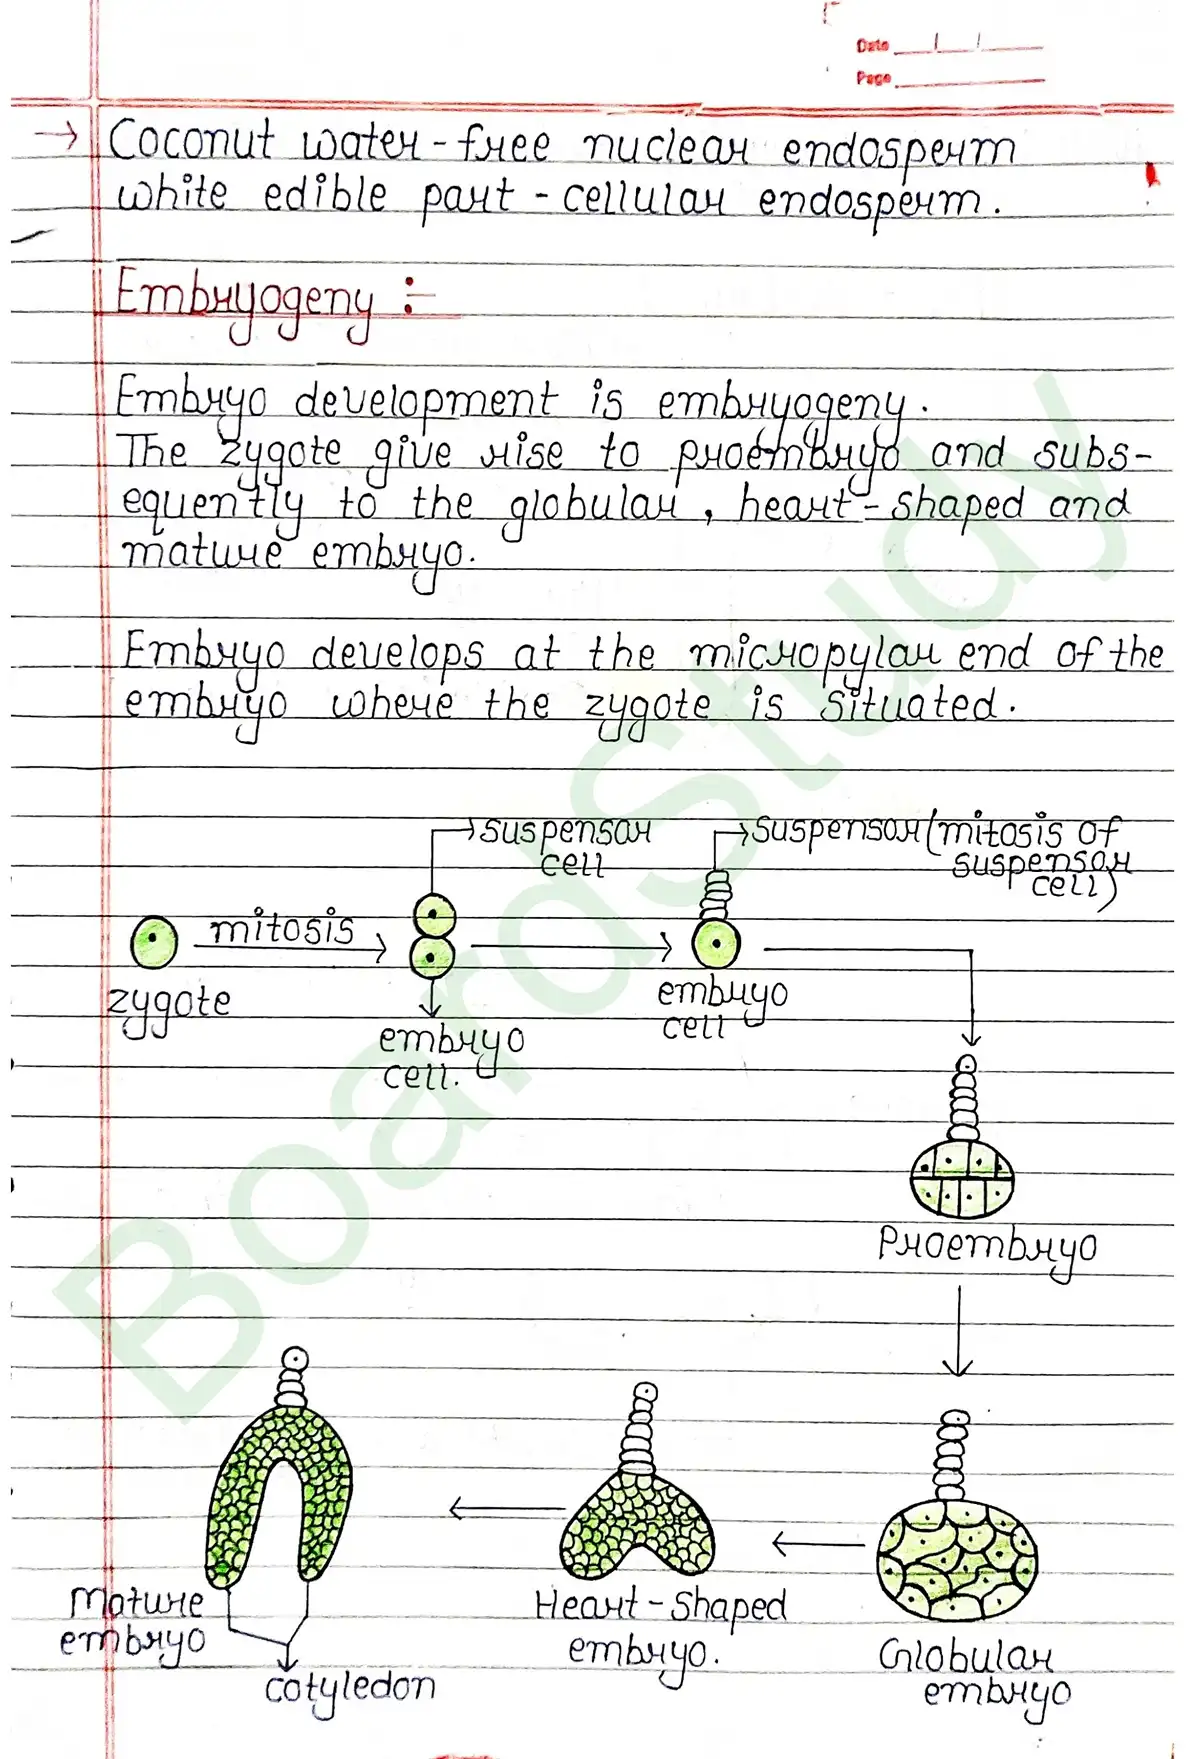 Date
Page
→ Coconut water-free nuclear endosperm
white edible part - cellular endosperm.
Embryogeny :-
Embryo development is embryogeny.
The zygote give rise to proembryo and subs-
equently to the globular, heart-shaped and
mature embryo.
Embryo develops at the micropylar end of the
embryo where the zygote is situated.
suspensor
cell
suspensor (mitosis of
suspensor
cell)
mitosis
zygote
embryo
cell.
embryo
cell
Proembryo
Mature
embryo
cotyledon
Heart-Shaped
embryo.
Globular
embryo
BoardStudy